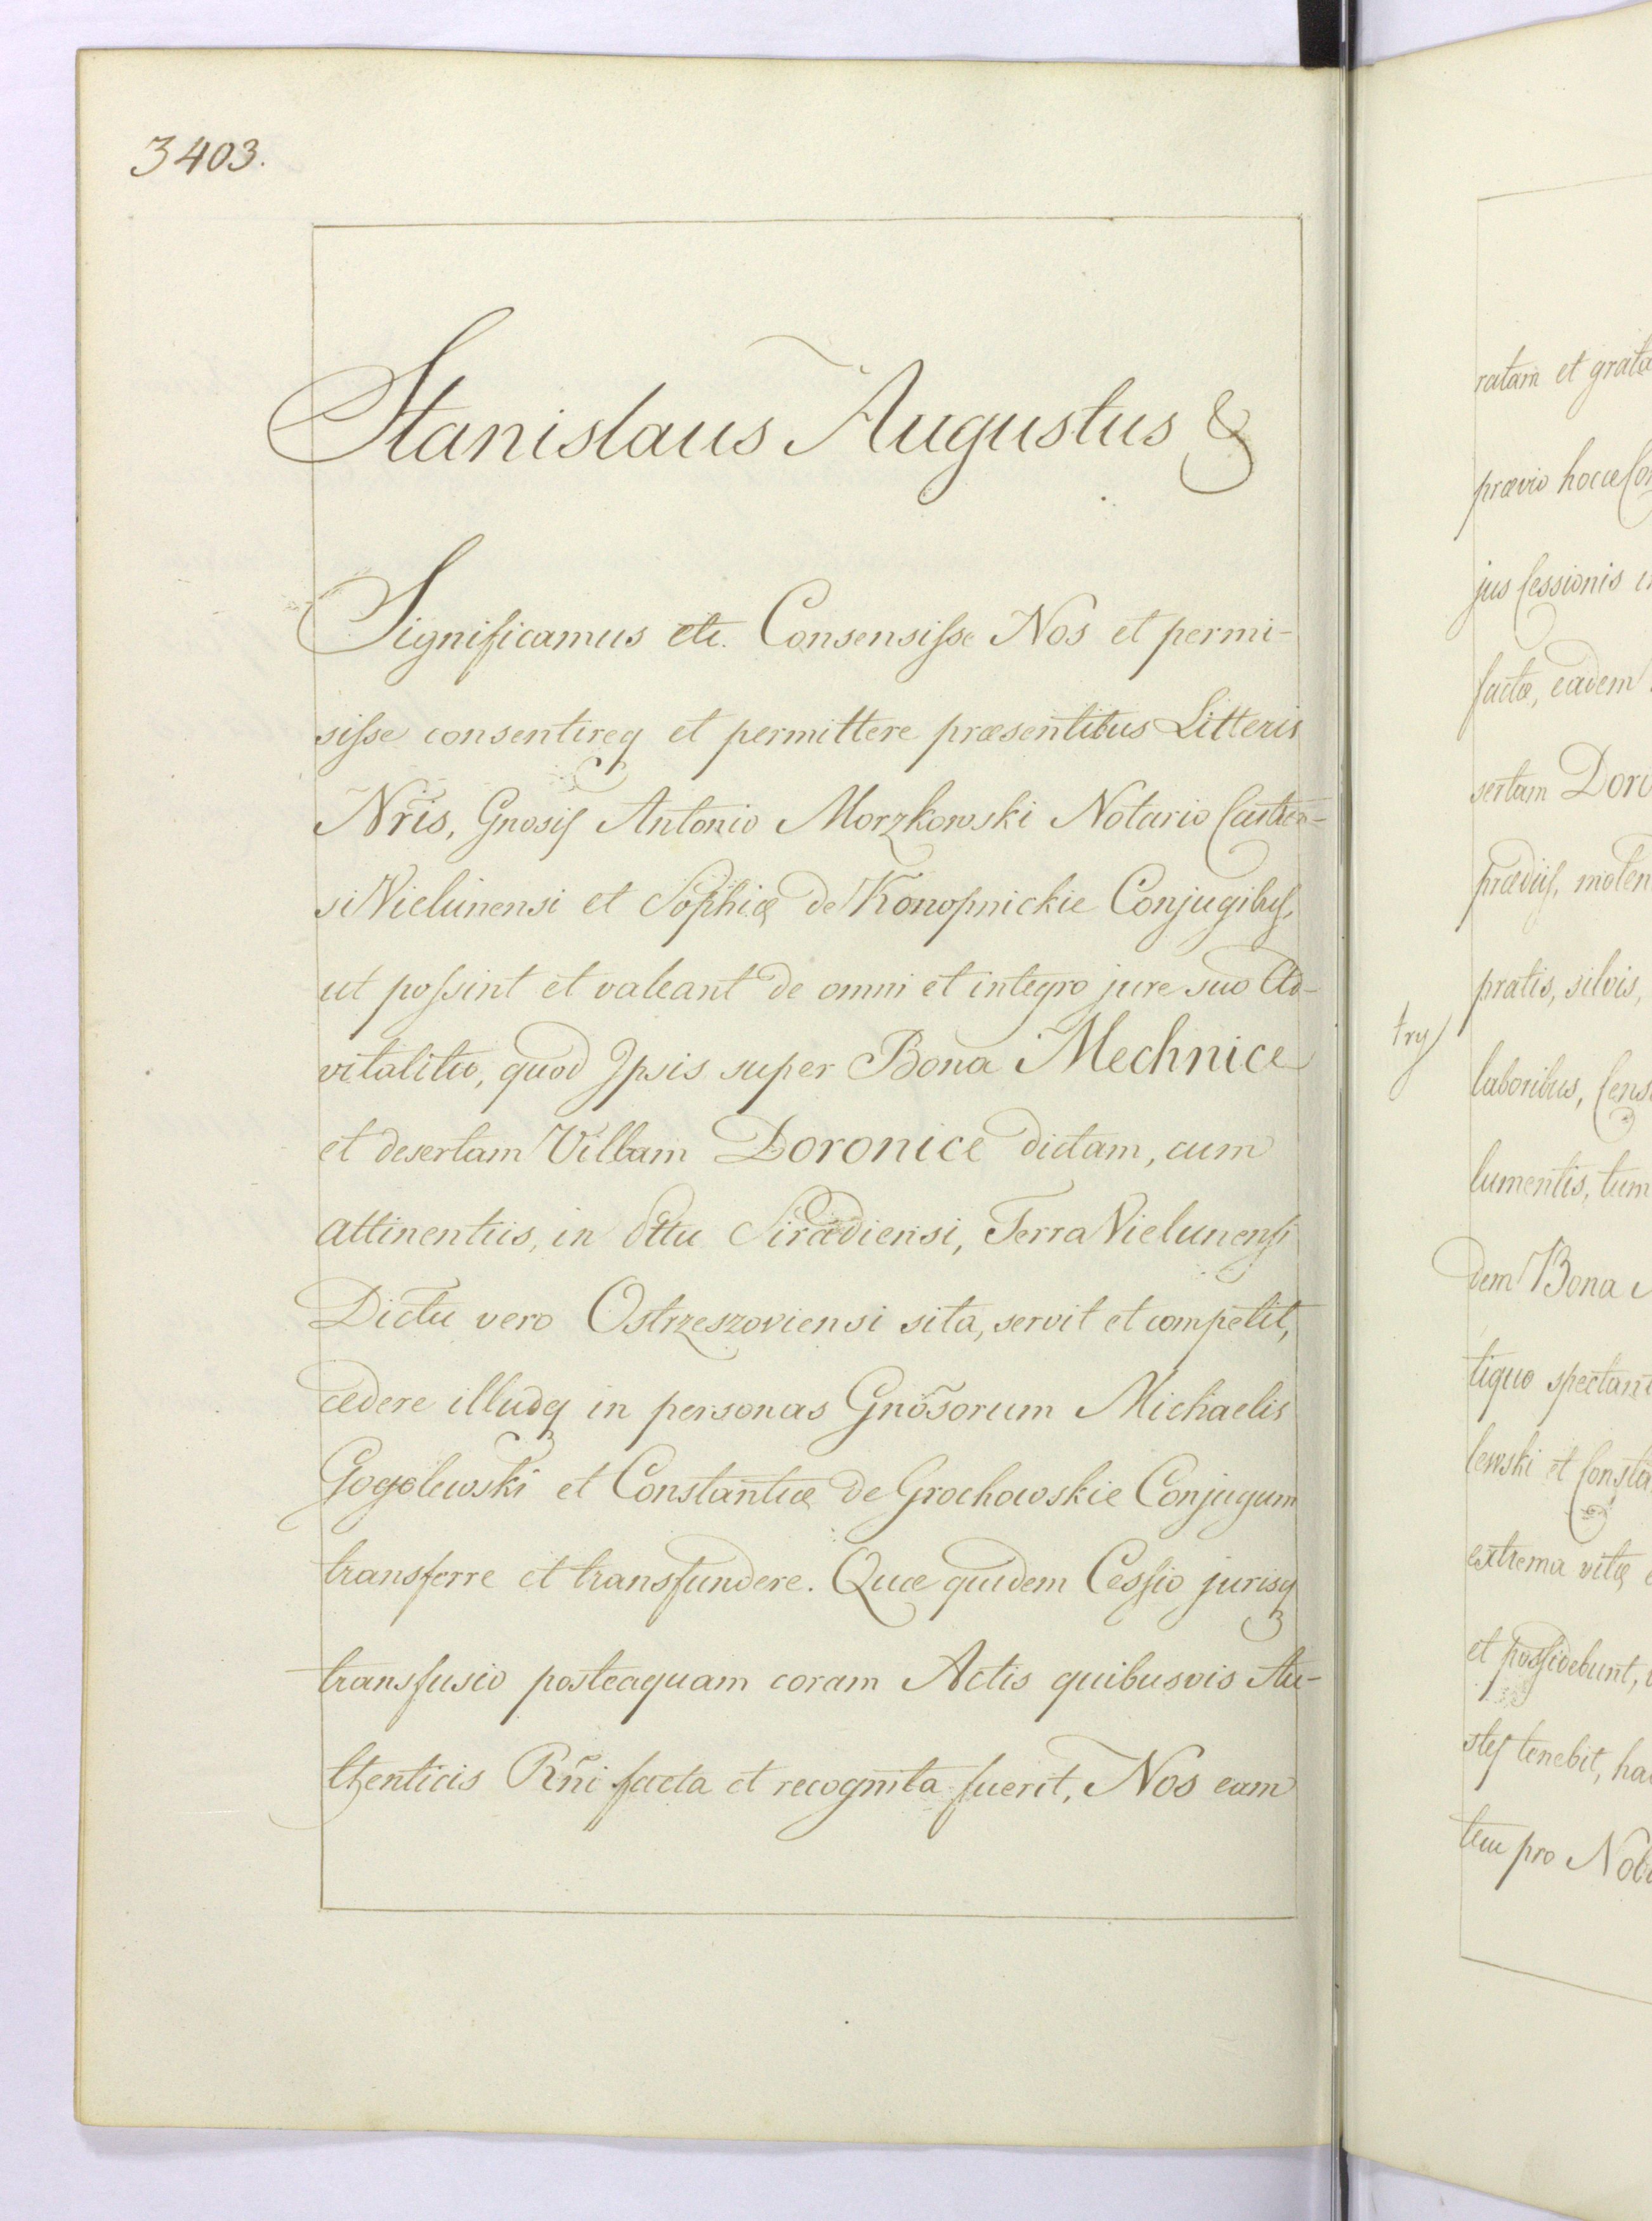 3403.
Stanislaus Augustus &
Significamus etc. Consensisse Nos et permi-
sisse consentireq et permittere præsentibus Litteris
Nris, Gnosis Antonio Morzkowski Notario Castren-
si Vielunensi et Sophiæ de Konopnickie Conjugibus,
ut possint et valeant de omni et integro jure suo Ad-
vitalitio, quod Ipsis super Bona Mechnice
et desertam Villam Doronice dictam, cum
attinentiis, in Dttu Siradiensi, Terra Vielunensi
Dictu vero Ostrzeszoviensi sita, servit et competit,
cedere illudq in personas Gnosorum Michaelis
Gogolewski et Constantiæ de Grochowskie Conjugum
transferre et transfundere. Quæ quidem Cessio jurisq
transfusio posteaquam coram Actis quibusvis Au-
thenticis Rni facta et recognita fuerit, Nos eam
ratam et grata
prævio hocce Con
jus Cessionis
factæ, eadem
sertam Doro
prædiis, molen
pratis, silvis,
try
laboribus, Cens
lumentis, tum
dem Bona
tiquo spectant
lewski et Consta
extrema vitæ
et possidebunt,
tenebit, ha
pro Nobi